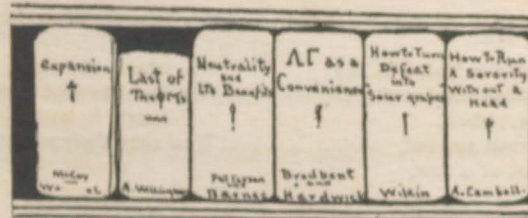 Expansion
McCoy
Last of
A. Wilkinson
Neutrality
and
Its Benefits
Patterson
Barnes
ΛΓ as a
Convenience
Brodbent
and
Hardwick
How to Turn
Defeat
into
"Sour grapes"
Wilkin
How to Run
A Sorority
Without a
Head
A. Cambell